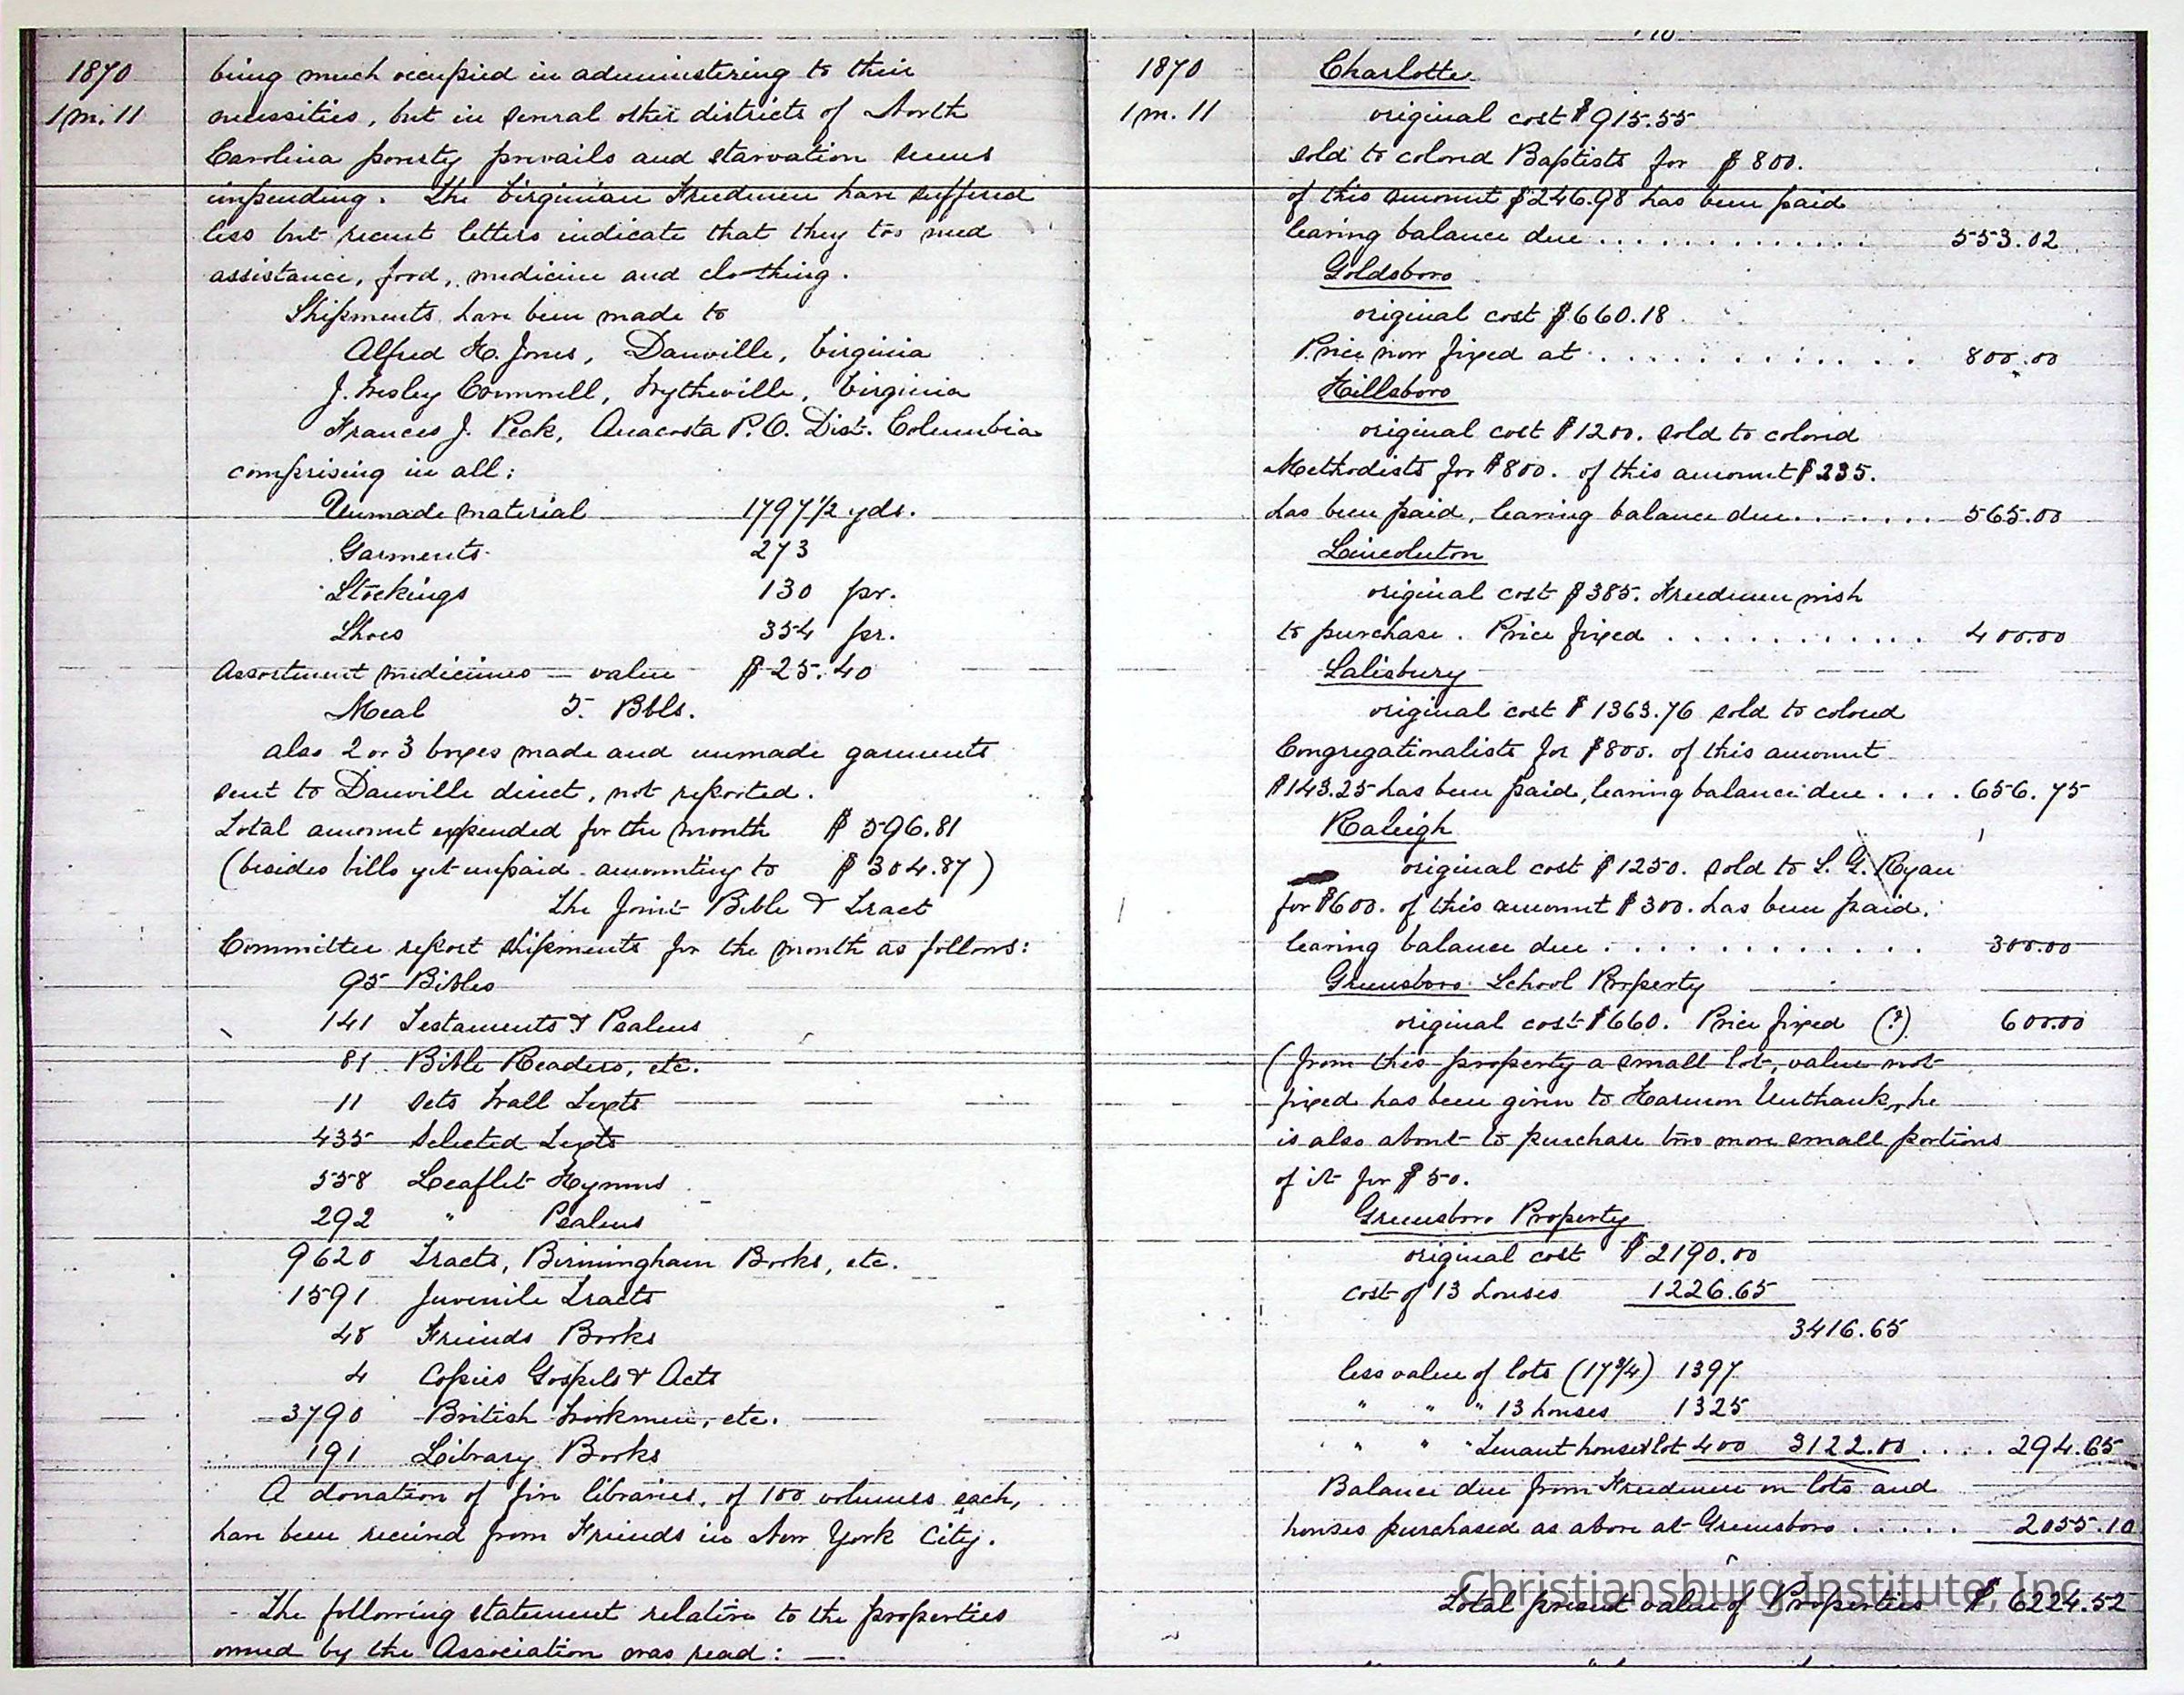 1870
1m. 11
being much occupied in administering to their
necessities, but in several other districts of North
Carolina poverty prevails and starvation seems
impending. The Virginian Freedmen have suffered
less but recent letters indicate that they too need
assistance, food, medicine and clothing.
Shipments have been made to
Alfred H. Jones, Danville, Virginia
J. Wesley Cornwell, Wytheville, Virginia
Frances J. Peck, Anacosta P.O. Dist. Columbia
comprising in all:
Unmade material 1797 1/2 yds.
Garments 273
Stockings 130 pr.
Shoes 354 pr.
Assortment medicines — value $25.40
Meal 5. Bbls.
also 2 or 3 boxes made and unmade garments
sent to Danville direct, not reported.
Total amount expended for the month $596.81
(besides bills yet unpaid amounting to $304.87)
The Joint Bible & Tract
Committee report shipments for the month as follows:
95 Bibles
141 Testaments & Psalms
81 Bible Readers, etc.
11 Sets Wall Texts
435 Selected Texts
558 Leaflet Hymns
292 " Psalms
9620 Tracts, Birmingham Books, etc.
1591 Juvenile Tracts
48 Friends Books
4 Copies Gospels & Acts
3790 British Workmen, etc.
191 Library Books
A donation of five libraries, of 100 volumes each,
have been received from Friends in New York City.
- The following statement relative to the properties
owned by the Association was read: —
1870
1m. 11
Charlotte
original cost $915.55
sold to colored Baptists for $800.
of this amount $246.98 has been paid
leaving balance due . . . . . . . . . . . . . 553.02
Goldsboro
original cost $660.18
Price now fixed at . . . . . . . . . . . . . 800.00
Hillsboro
original cost $1200. sold to colored
Methodists for $800. of this amount $235.
has been paid, leaving balance due. . . . . . . 565.00
Lincolnton
original cost $385. Freedmen wish
to purchase. Price fixed . . . . . . . . . . . . 400.00
Salisbury
original cost $1363.76 sold to colored
Congregationalists for $800. of this amount
$143.25 has been paid, leaving balance due . . . . 656.75
Raleigh
original cost $1250. sold to L. G. Ryan
for $600. of this amount $300. has been paid,
leaving balance due . . . . . . . . . . . . . 300.00
Greensboro School Property
original cost $660. Price fixed (?) 600.00
(from this property a small lot, value not
fixed has been given to Harmon Unthank, he
is also about to purchase two more small portions
of it for $50.
Greensboro Property
original cost $2190.00
cost of 13 houses 1226.65
3416.65
less value of lots (17 3/4) 1397
" " " 13 houses 1325
" " " Tenant house & lot 400 3122.00 . . . . 294.65
Balance due from Freedmen on lots and
houses purchased as above at Greensboro . . . . . 2055.10
Total present value of Properties $6224.52
Christiansburg Institute, Inc.